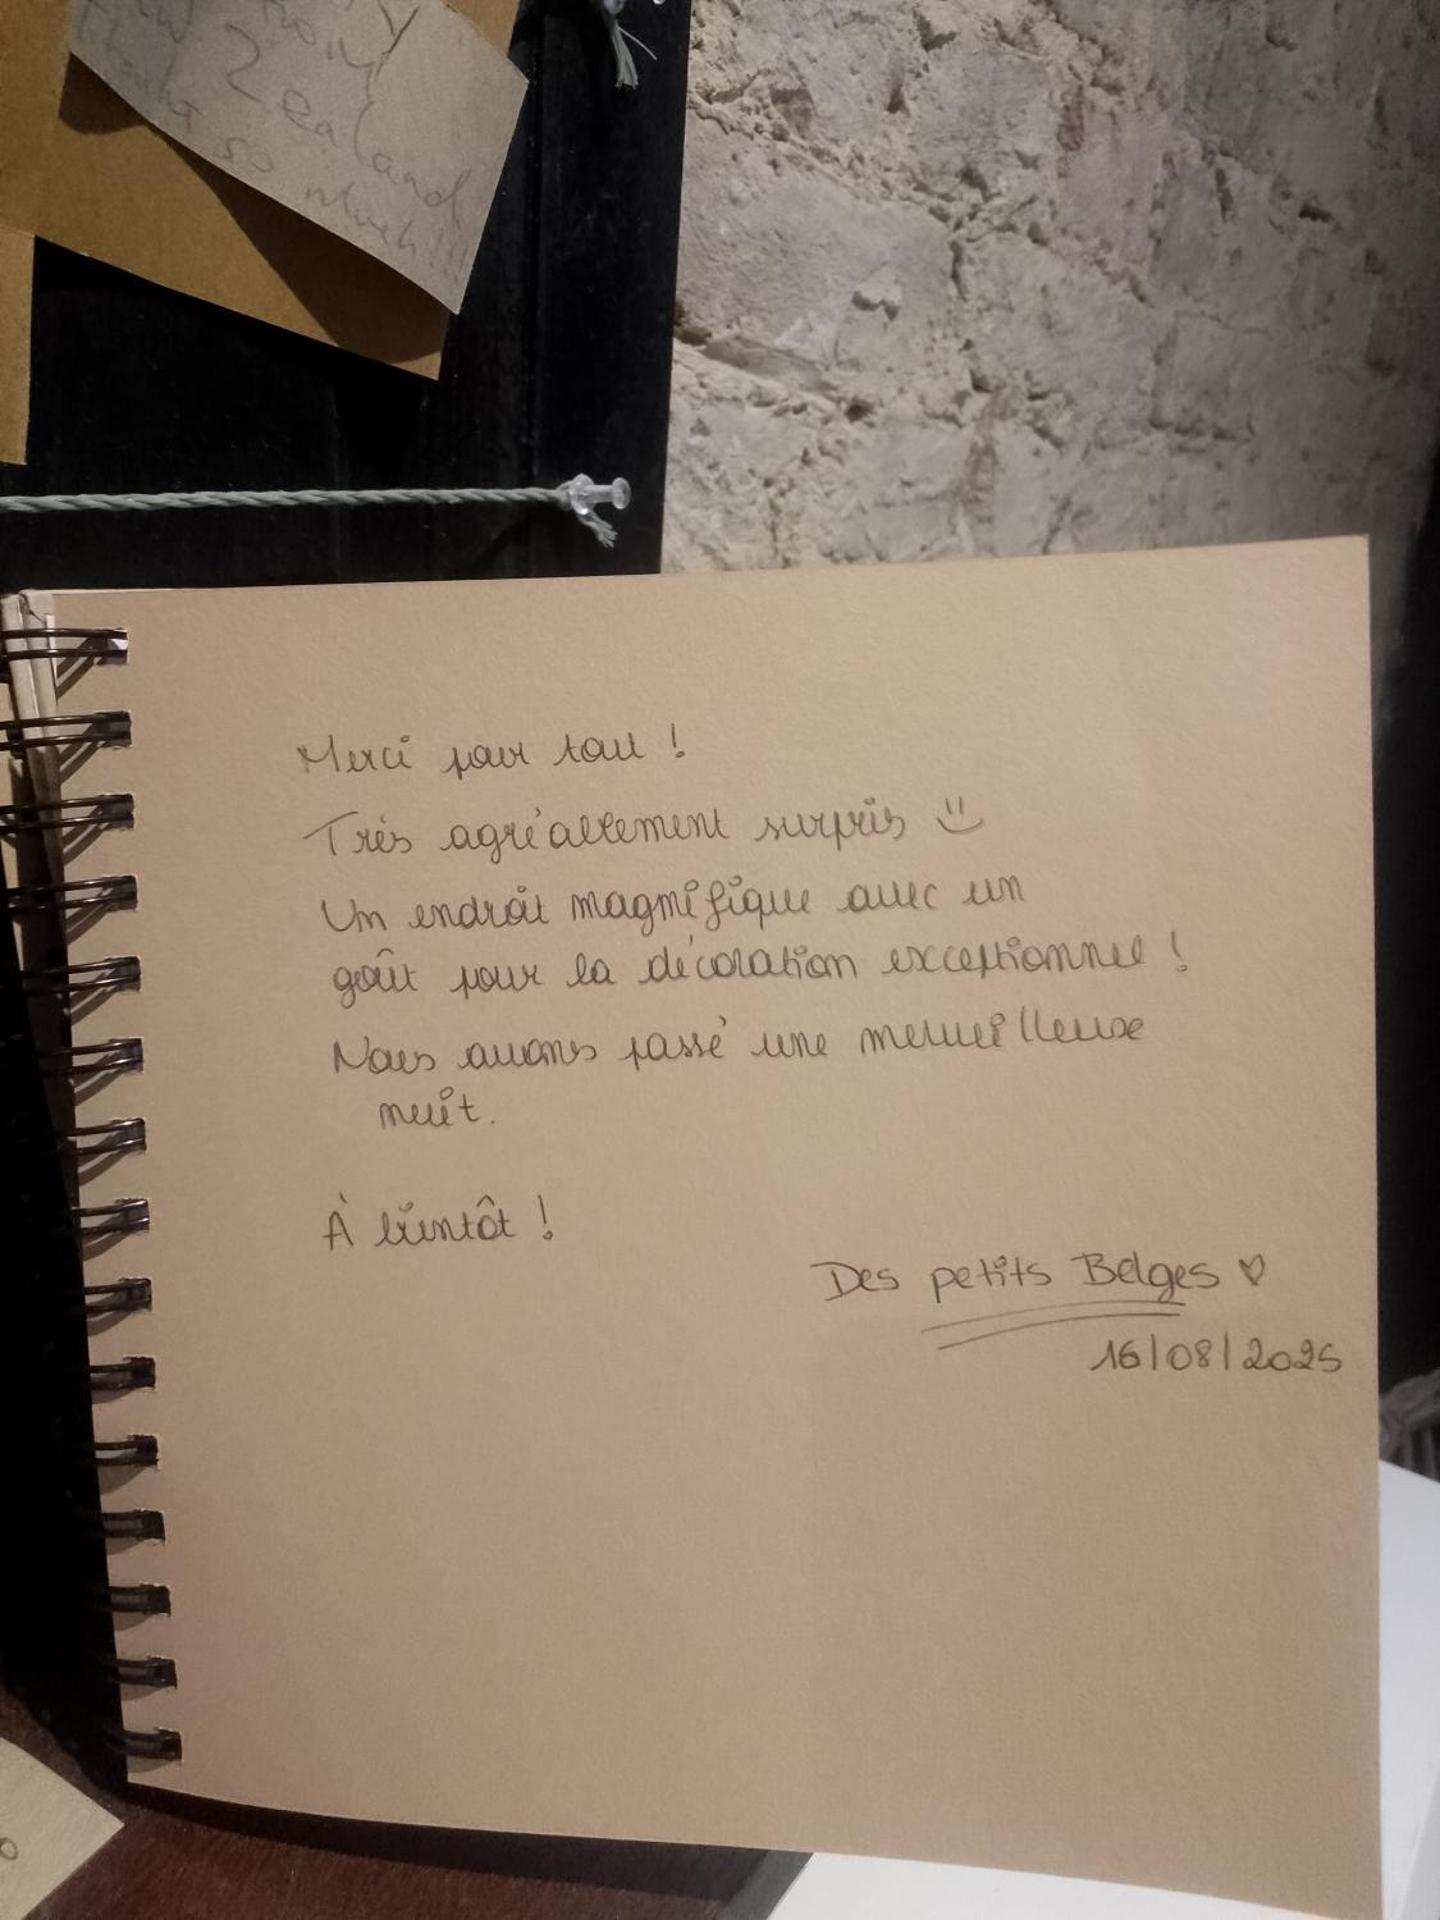 New Zealand
so much!!!
Merci pour tout !
Très agréablement surpris :)
Un endroit magnifique avec un
goût pour la décoration exceptionnel !
Nous avons passé une merveilleuse
nuit.
À bientôt !
Des petits Belges ♡
16/08/2025